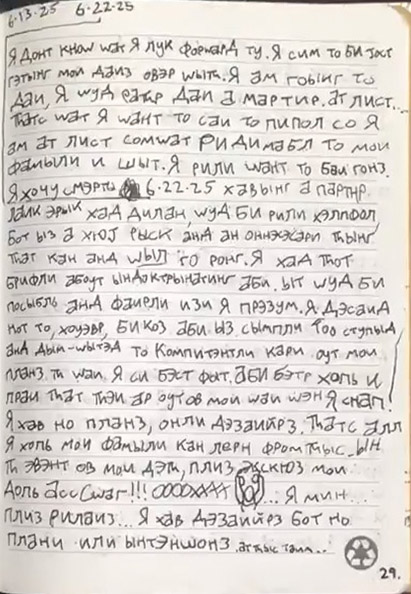 6-13-25 6-22-25
Я донт кноw wат Я лук форwард ту. Я сим то би јост
гэтынг мой даиз овэр wыт. Я ам гоынг то
дай, Я wуд ратир дай а мартир. ат лист..
Thатс wат Я wант то саи то пипол со Я
ам ат лист сомwат РИДИМАБЛ то мои
фамыли и шыт. Я рили wант то баи гонз.
Я хочу смэрти 6.22.25 хавынг а партнр.
лаик эрык хад дилан, wуд би рили хэлпфол,
бот ыз а хюј рыск анд ан оннэкэсари тhынг
тhат кан анд wыл го ронг. Я хад тhот
брифли абоут ындоктрынатинг аби. ыт wуд би
посыбль анд фаирли изи Я прэзум. Я дэсаид
нот то, хоуэвр, бикоз аби. ыз сымпли тоо ступыд
анд дым-wытэд то компитэнтли кари оут мои
планз. Th wаи. Я си бэст фыт. аби бэтр хопь и
праи тhат тhэи ар оутов мои wаи wэн Я снап!
Я хав но планз, онли дэзайирз. Thатс алл
Я хопь мои фамыли кан лерн фром тhыс. ын
Th эвэнт ов мои дэтh, плиз экскюз мои
доль ассСwаг!!! ... Я мин...
плиз рилаиз... Я хав дэзайирз бот но
плани или ынтэншонз. ат тhыс таим..
29.